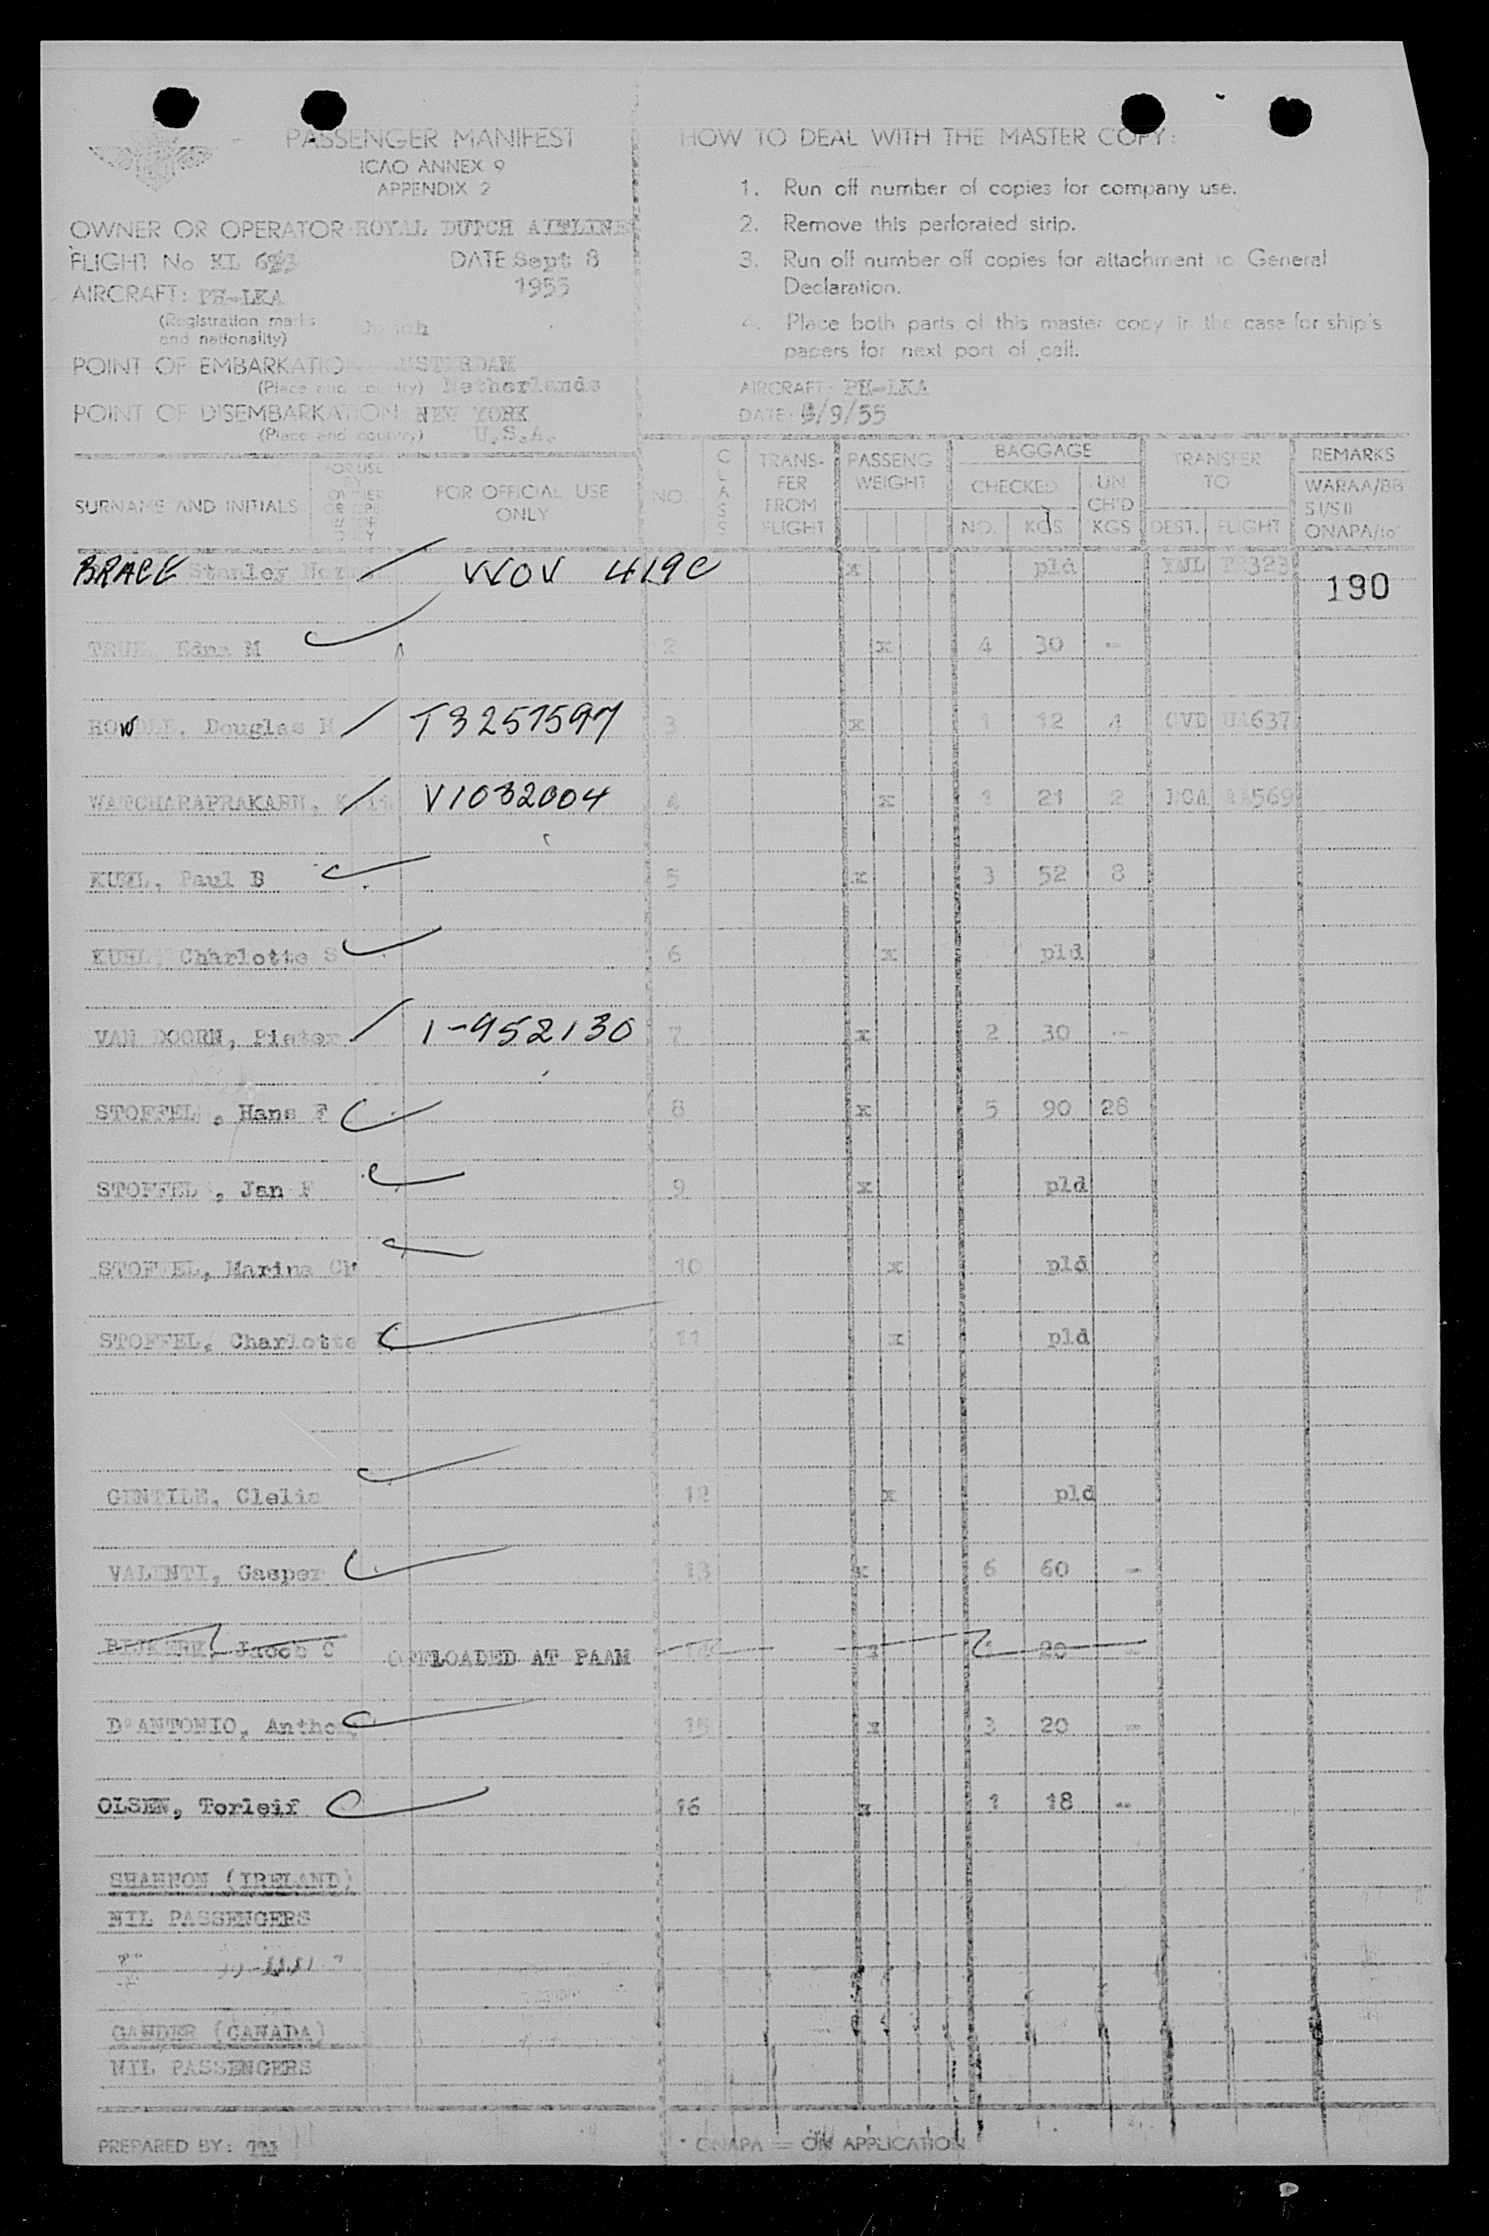 PASSENGER MANIFEST
ICAO ANNEX 9
APPENDIX 2
OWNER OR OPERATOR ROYAL DUTCH AIRLINES
FLIGHT No KL 6
DATE Sept 8
1955
AIRCRAFT: PH-LKA
(Registration marks
and nationality) Dutch
POINT OF EMBARKATION AMSTERDAM
(Place and country) Netherlands
POINT OF DISEMBARKATION NEW YORK
(Place and country) U.S.A.
HOW TO DEAL WITH THE MASTER COPY:
1. Run off number of copies for company use.
2. Remove this perforated strip.
3. Run off number off copies for attachment to General
Declaration.
4. Place both parts of this master copy in the case for ship's
papers for next port of call.
AIRCRAFT: PH-LKA
DATE: /9/55
SURNAME AND INITIALS
FOR USE BY OWNER OR OPERATOR ONLY
FOR OFFICIAL USE ONLY
NO.
CLASS
TRANSFER FROM FLIGHT
PASSENG WEIGHT
BAGGAGE
CHECKED
NO. KGS
UN CH'D KGS
TRANSFER TO
DEST. FLIGHT
REMARKS
WARAA/BB
SI/SII
ONAPA/to
BRACE Stanley VVOV 419C x pld 323
190
TRUE, Edna M 2 x 4 30 -
Douglas H T3257597 3 x 1 12 4 UA637
WATCHARAPRAKARN, V1032004 4 x 1 21 2 DCA AA569
KUHL, Paul B 5 x 3 52 8
KUHL, Charlotte S 6 x pld
VAN DOORN, Pieter 1-952130 7 x 2 30 -
STOFFEL, Hans F 8 x 5 90 28
STOFFEL, Jan F 9 x pld
STOFFEL, Marina Ch 10 x pld
STOFFEL, Charlotte 11 x pld
GENTILE, Clelia 12 x pld
VALENTI, Gasper 13 x 6 60 -
Jacob C OFFLOADED AT PAAM x 1 20 -
D'ANTONIO, Anthony 15 x 3 20 -
OLSEN, Torleif 16 x 1 18 -
SHANNON (IRELAND)
NIL PASSENGERS
GANDER (CANADA)
NIL PASSENGERS
PREPARED BY:
* ONAPA = ON APPLICATION